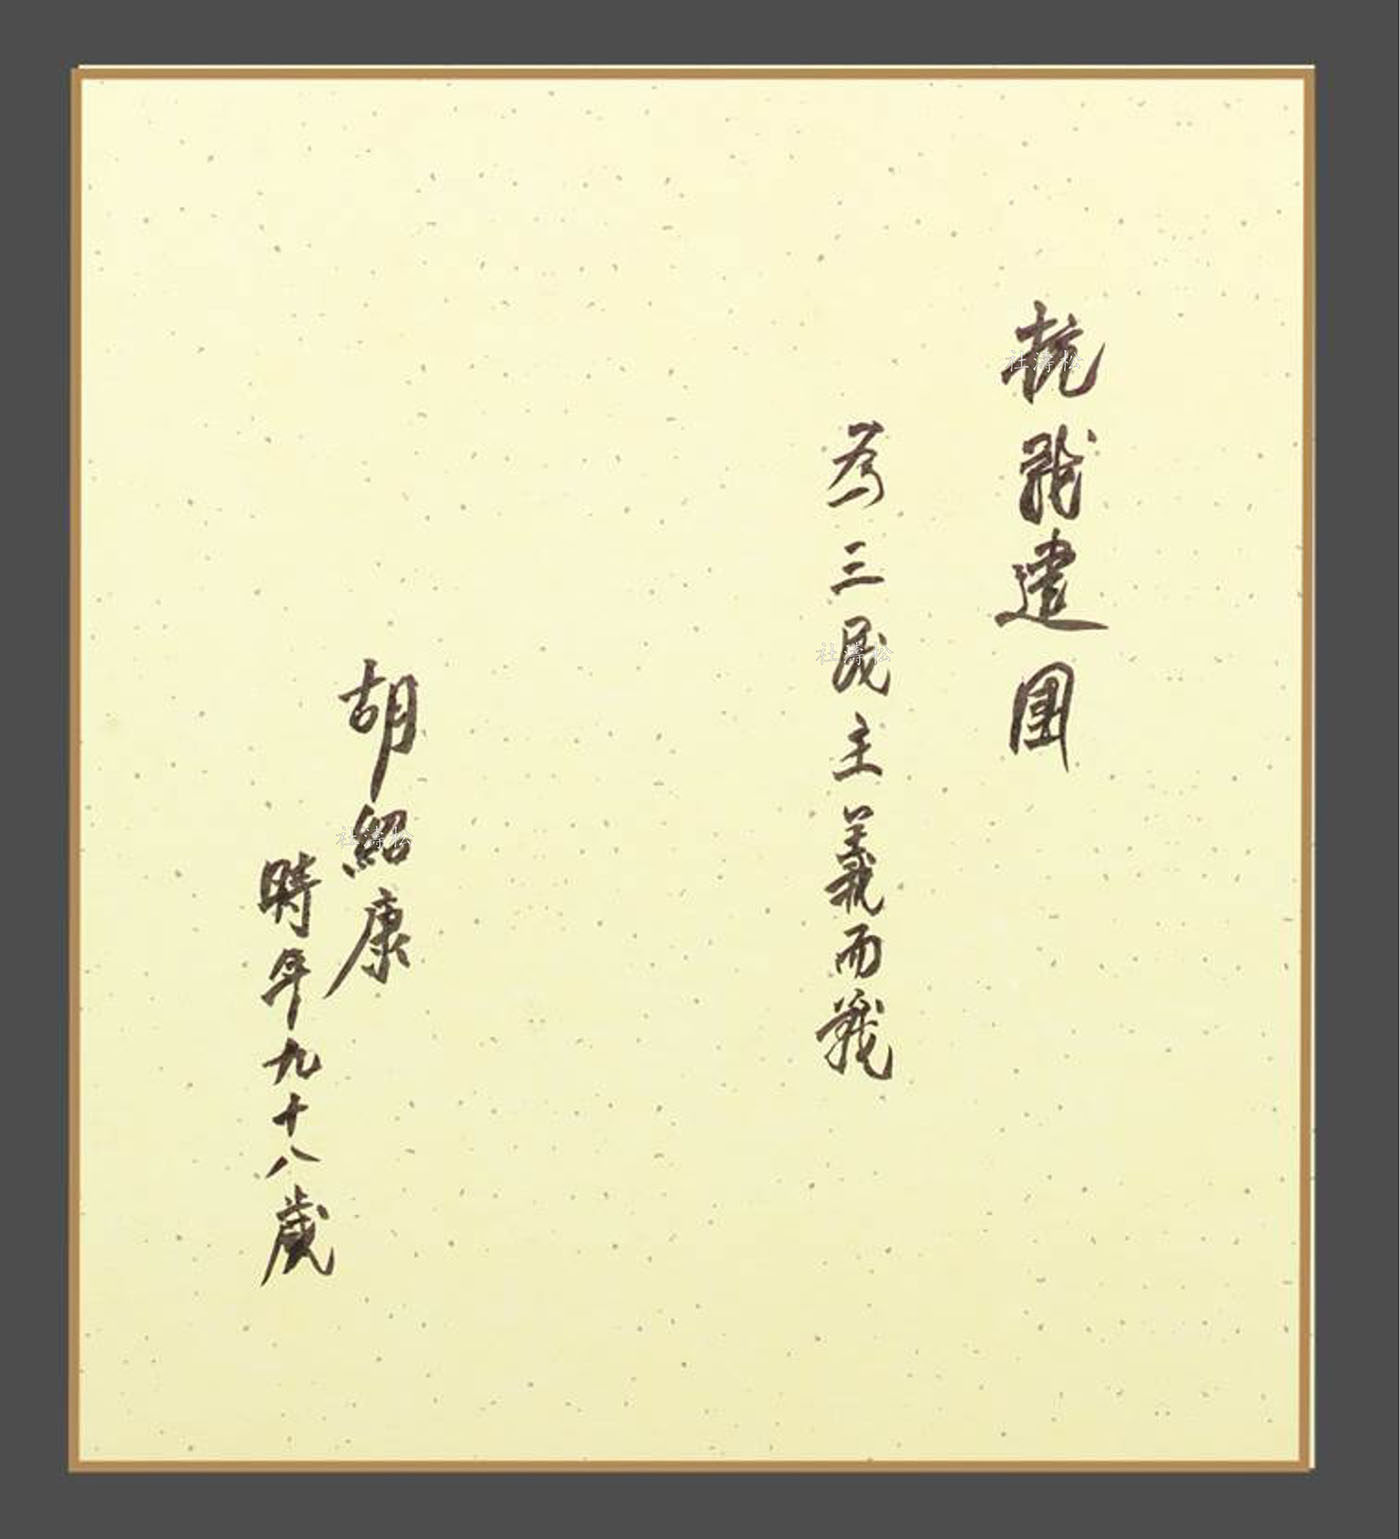 抗戰建國
為三民主義而戰
胡紹康
時年九十八歲
杜濤松
杜濤松
杜濤松